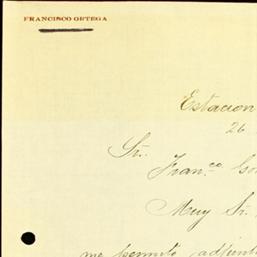 FRANCISCO ORTEGA
Estacion
26
Sr.
Fran.co
Muy Sr.
me permito